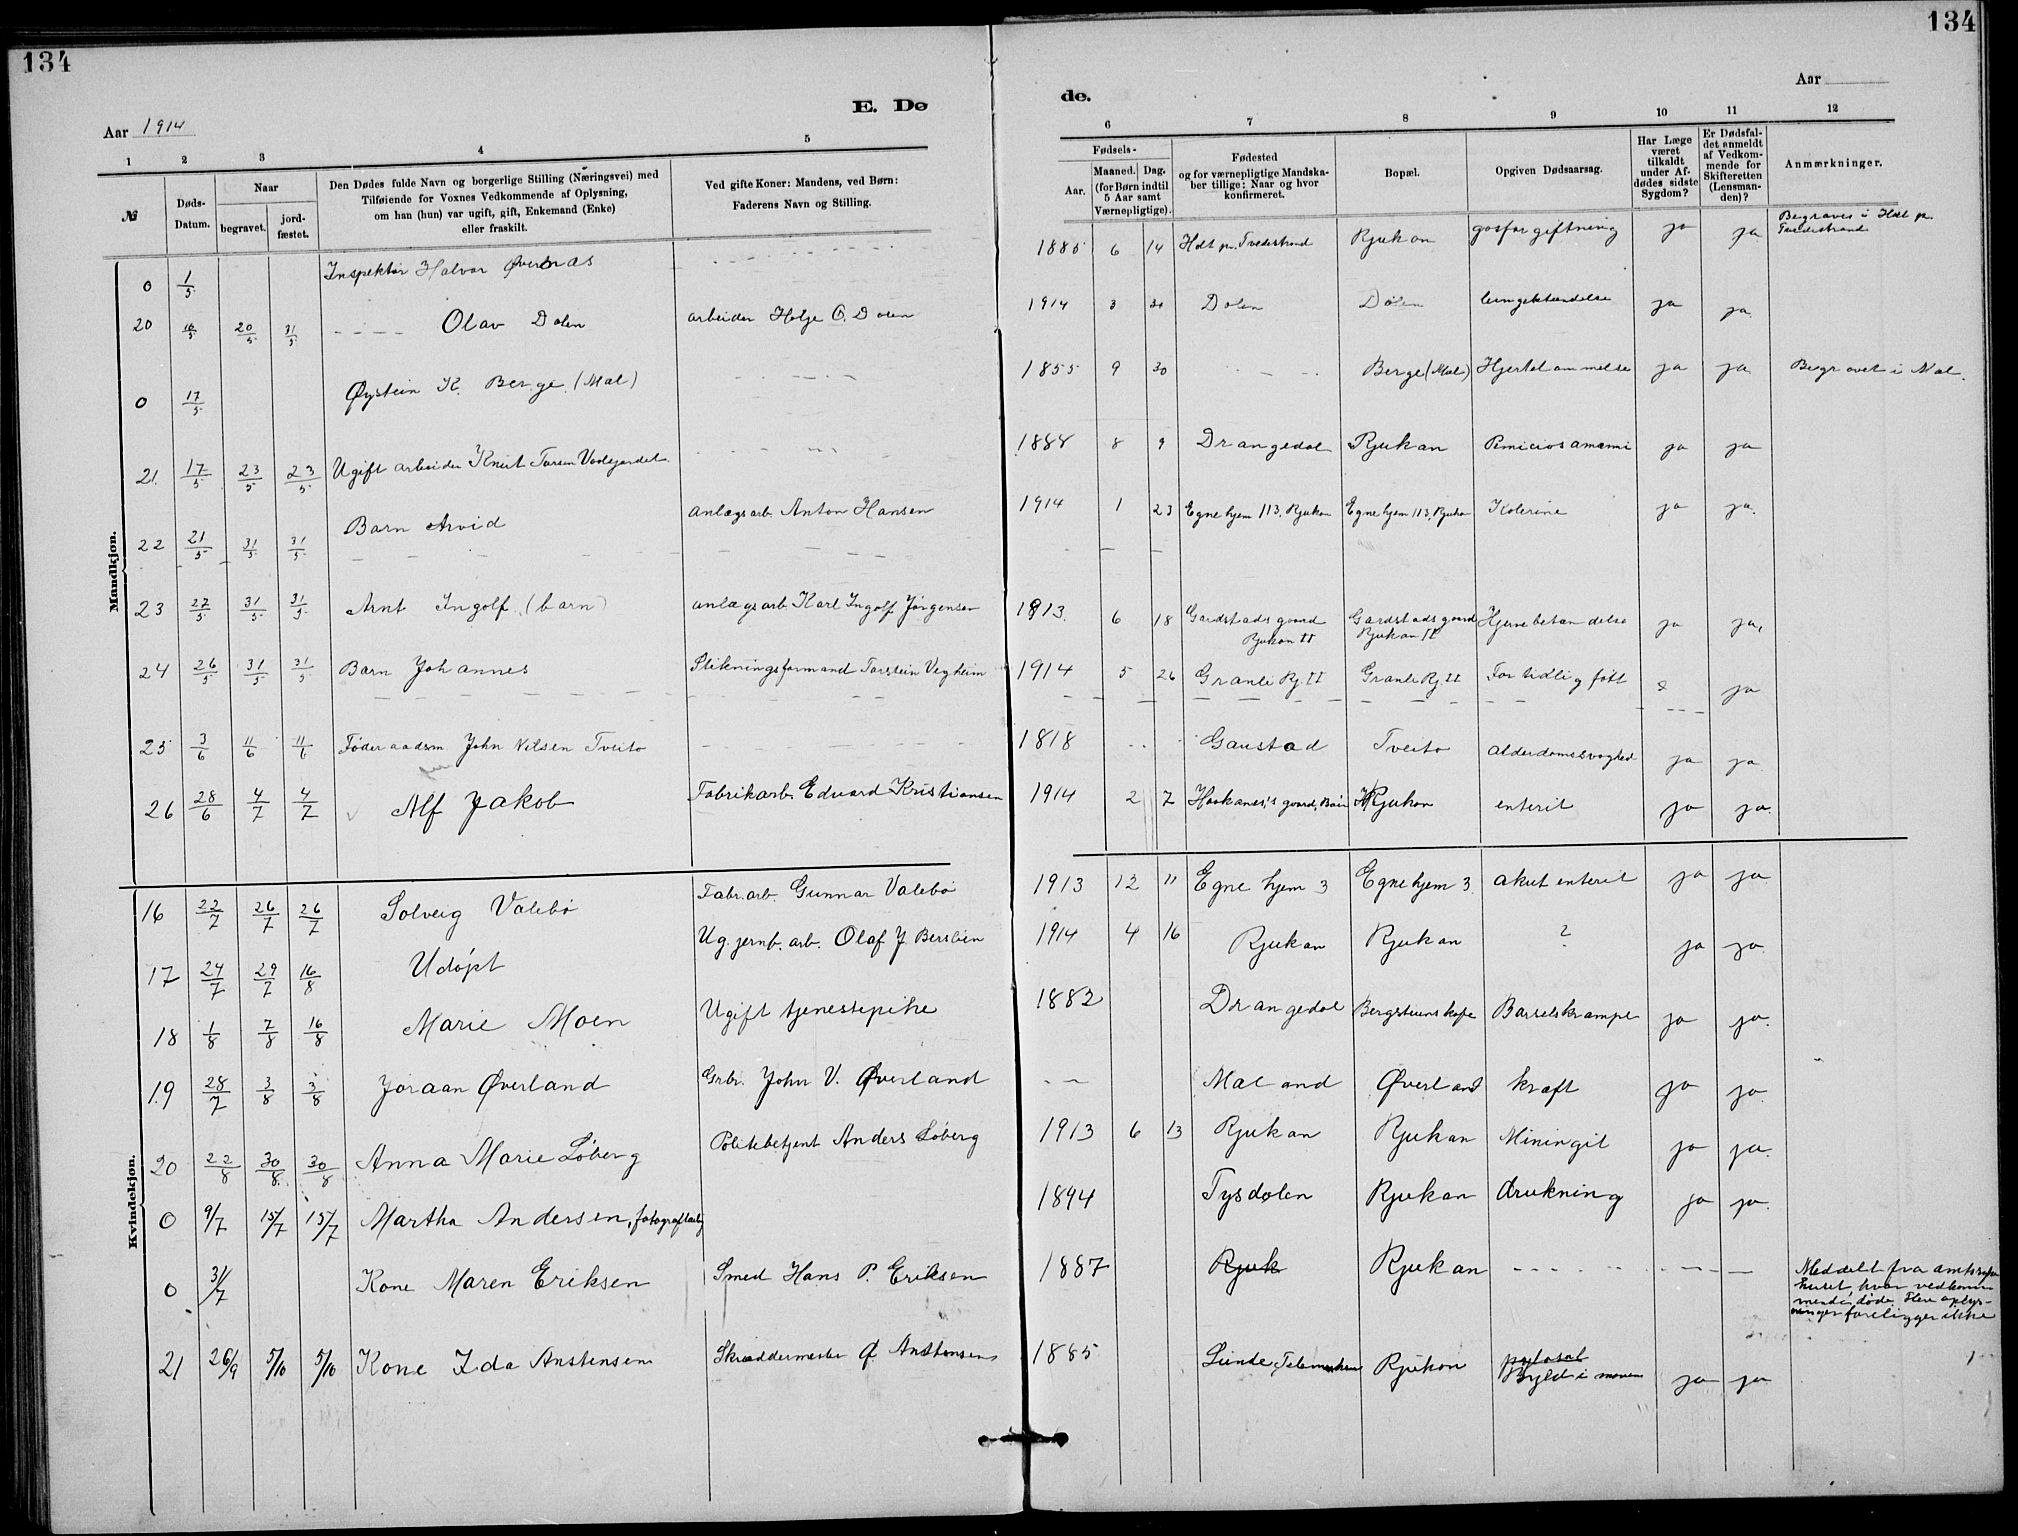 134
134
Aar 1914
E. Dø
de.
Aar
1 2 3 4 5 6 7 8 9 10 11 12
№
Døds-Datum.
Naar
begravet.
jord-fæstet.
Den Dødes fulde Navn og borgerlige Stilling (Næringsvei) med
Tilføiende for Voxnes Vedkommende af Oplysning,
om han (hun) var ugift, gift, Enkemand (Enke)
eller fraskilt.
Ved gifte Koner: Mandens, ved Børn:
Faderens Navn og Stilling.
Fødsels-
Aar.
Maaned. Dag.
(for Børn indtil
5 Aar samt
Værnepligtige).
Fødested
og for værnepligtige Mandska-
ber tillige: Naar og hvor
konfirmeret.
Bopæl.
Opgiven Dødsaarsag.
Har Læge
været
tilkaldt
under Af-
dødes sidste
Sygdom?
Er Dødsfal-
det anmeldt
af Vedkom-
mende for
Skifteretten
(Lensman-
den)?
Anmærkninger.
Mandkjøn.
0 1/5 Inspektør Halvor Øvernæs - - - - 1885 6 14 Holt pr. Tvedestrand Rjukan gasforgiftning ja ja Begraves i Holt pr. Tvedestrand
20 16/5 20/5 31/5 - - - - Olav Dalen arbeider Helje O. Dalen 1914 3 Dalen Dalen lungebetændelse ja ja.
0 17/5 Øystein K. Berge (Mæl) - - - 1855 9 30 - - - Berge (Mæl) Hjertelammelse ja ja Begravet i Mæl.
21. 17/5 23/5 23/5 Ugift arbeider Knut - - - 1888 8 9 Drangedal Rjukan ja ja
22 21/5 31/5 31/5 Barn Arvid anlægsarb. Anton Hansen 1914 1 23 Egne hjem 113, Rjukan Egne hjem 113, Rjukan Kolerine ja ja.
23 27/5 31/5 31/5 Arnt Ingolf (barn) anlægsarb. Karl Ingolf Jørgensen 1913. 6 18 Gardstadsgaard Rjukan II Gardstadsgaard Rjukan II Hjernebetændelse ja ja,
24 26/5 31/5 31/5 Barn Johannes Stikningsformand Torstein Vegheim 1914 5 26 Granli Rj. II Granli Rj. II For tidlig født ja
25 3/6 11/6 11/6 Føderaadsm. John Nilsen Tveito - - - 1818 - - Gaustad Tveito alderdomssvaghed ja ja
26 28/6 4/7 4/7 Alf Jakob Fabrikarb. Edvard Kristiansen 1914 2 7 Haakanes's gaard, Rjukan enterit ja ja.
Kvindekjøn.
16 22/7 26/7 26/7 Solveig Valebø Fabr.arb. Gunnar Valebø 1913 12 11 Egne hjem 3 Egnehjem 3. akut enterit ja ja
17 24/7 29/7 16/8 Udøpt Ug. jernb. arb. Olaf J. 1914 4 16 Rjukan Rjukan ? ja ja
18 1/8 7/8 16/8 Marie Moen Ugift tjenestepike 1882 Drangedal Barselskrampe ja ja.
19 28/7 3/8 3/8 Joraan Øverland Grbr. John V. Øverland - - Mæland Øverland kræft ja ja.
20 22/8 30/8. 30/8 Anna Marie Løberg Politibetjent Anders Løberg 1913 6 13 Rjukan Rjukan Miningit ja ja.
0 9/7 15/7 15/7 Martha Andersen, 1894 Tysdalen Rjukan drukning ja ja.
0 31/7 Kone Maren Eriksen Smed Hans P. Eriksen 1887 Rjuk Rjukan - - - - - - Meddelt fra amtssyke huset, hvor vedkom- mende døde. Flere oplys- ninger foreligger ikke
21 26/9 5/10 5/10 Kone Ida Anstensen Skræddermester Ø Anstensen 1885 Lunde, Telemarken Rjukan Byld i maven ja ja